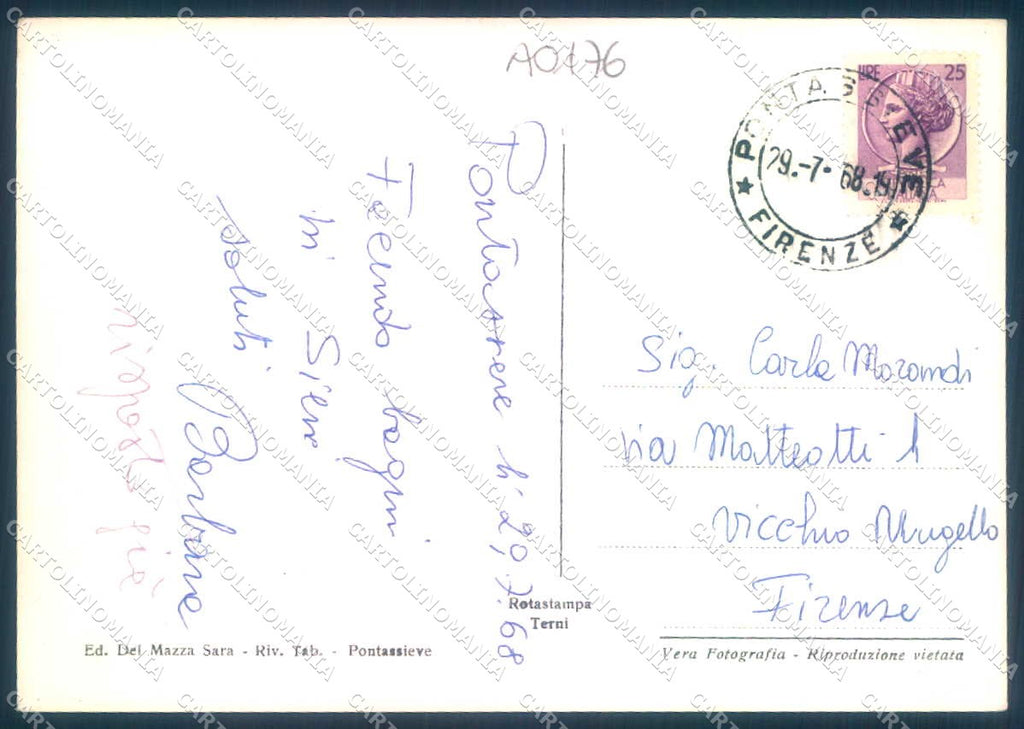 A0176
LIRE 25
PONTASSIEVE
29.-7-68.19
★ FIRENZE ★
Pontassieve li 20,7.68
Facendo bagni
in Sieve
saluti
Barbara
risposto già
Sig. Carla Morandi
via Matteotti 1
Vicchio Mugello
Firenze
Rotastampa
Terni
Ed. Del Mazza Sara - Riv. Tab. - Pontassieve
Vera Fotografia - Riproduzione vietata
CARTOLINOMANIA